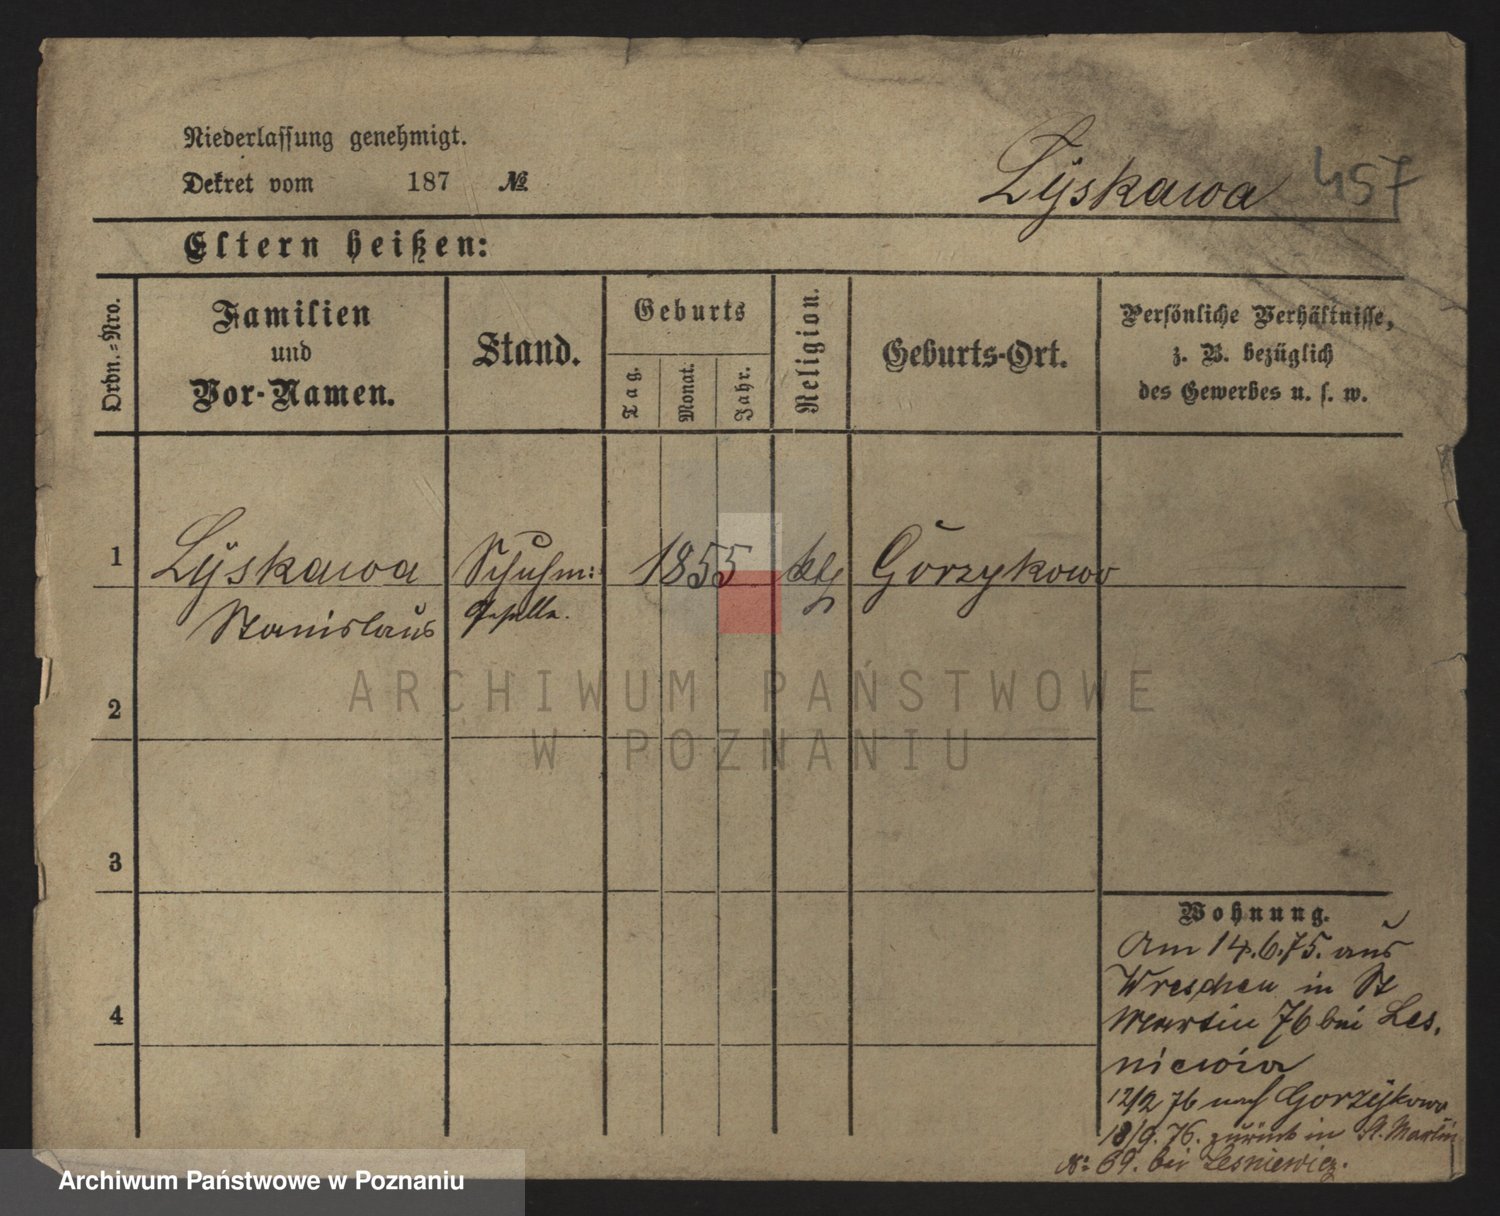 Niederlassung genehmigt.
Dekret vom 187 №
Lyskawa 457
Eltern heißen:
Ordn.-Nro.
Familien
und
Vor-Namen.
Stand.
Geburts
Tag.
Monat.
Jahr.
Religion.
Geburts-Ort.
Persönliche Verhältnisse,
z. B. bezüglich
des Gewerbes u. s. w.
1 Lyskawa Schuhm: 1855 kth Gorzykowo
Stanislaus geselle.
2
3
4
Wohnung.
Am 14.6.75. aus
Wreschen in St
Martin 76 bei Les,
niewicz
12/2 76 nach Gorzykowo
18/9. 76. zurück in St. Martin
№ 69. bei Lesniewicz.
ARCHIWUM PAŃSTWOWE
W POZNANIU
Archiwum Państwowe w Poznaniu